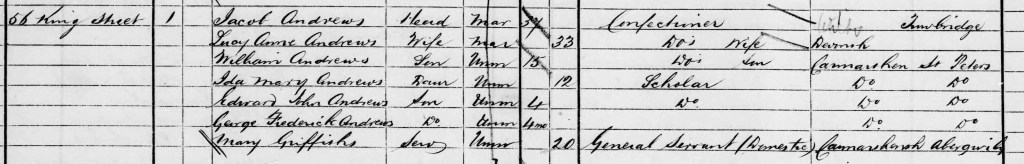 56 King Street 1 Jacob Andrews Head Mar 37 Confectioner Trowbridge
Lucy Anne Andrews Wife Mar 33 Do's Wife
William Andrews Son Unm 15 Do's Son Carmarthen St Peters
Ida Mary Andrews Daur Unm 12 Scholar Do Do
Edward John Andrews Son Unm 4 Do Do Do
George Frederick Andrews Do Unm 4 mo Do Do
Mary Griffiths Serv Unm 20 General Servant (Domestic) Abergwili